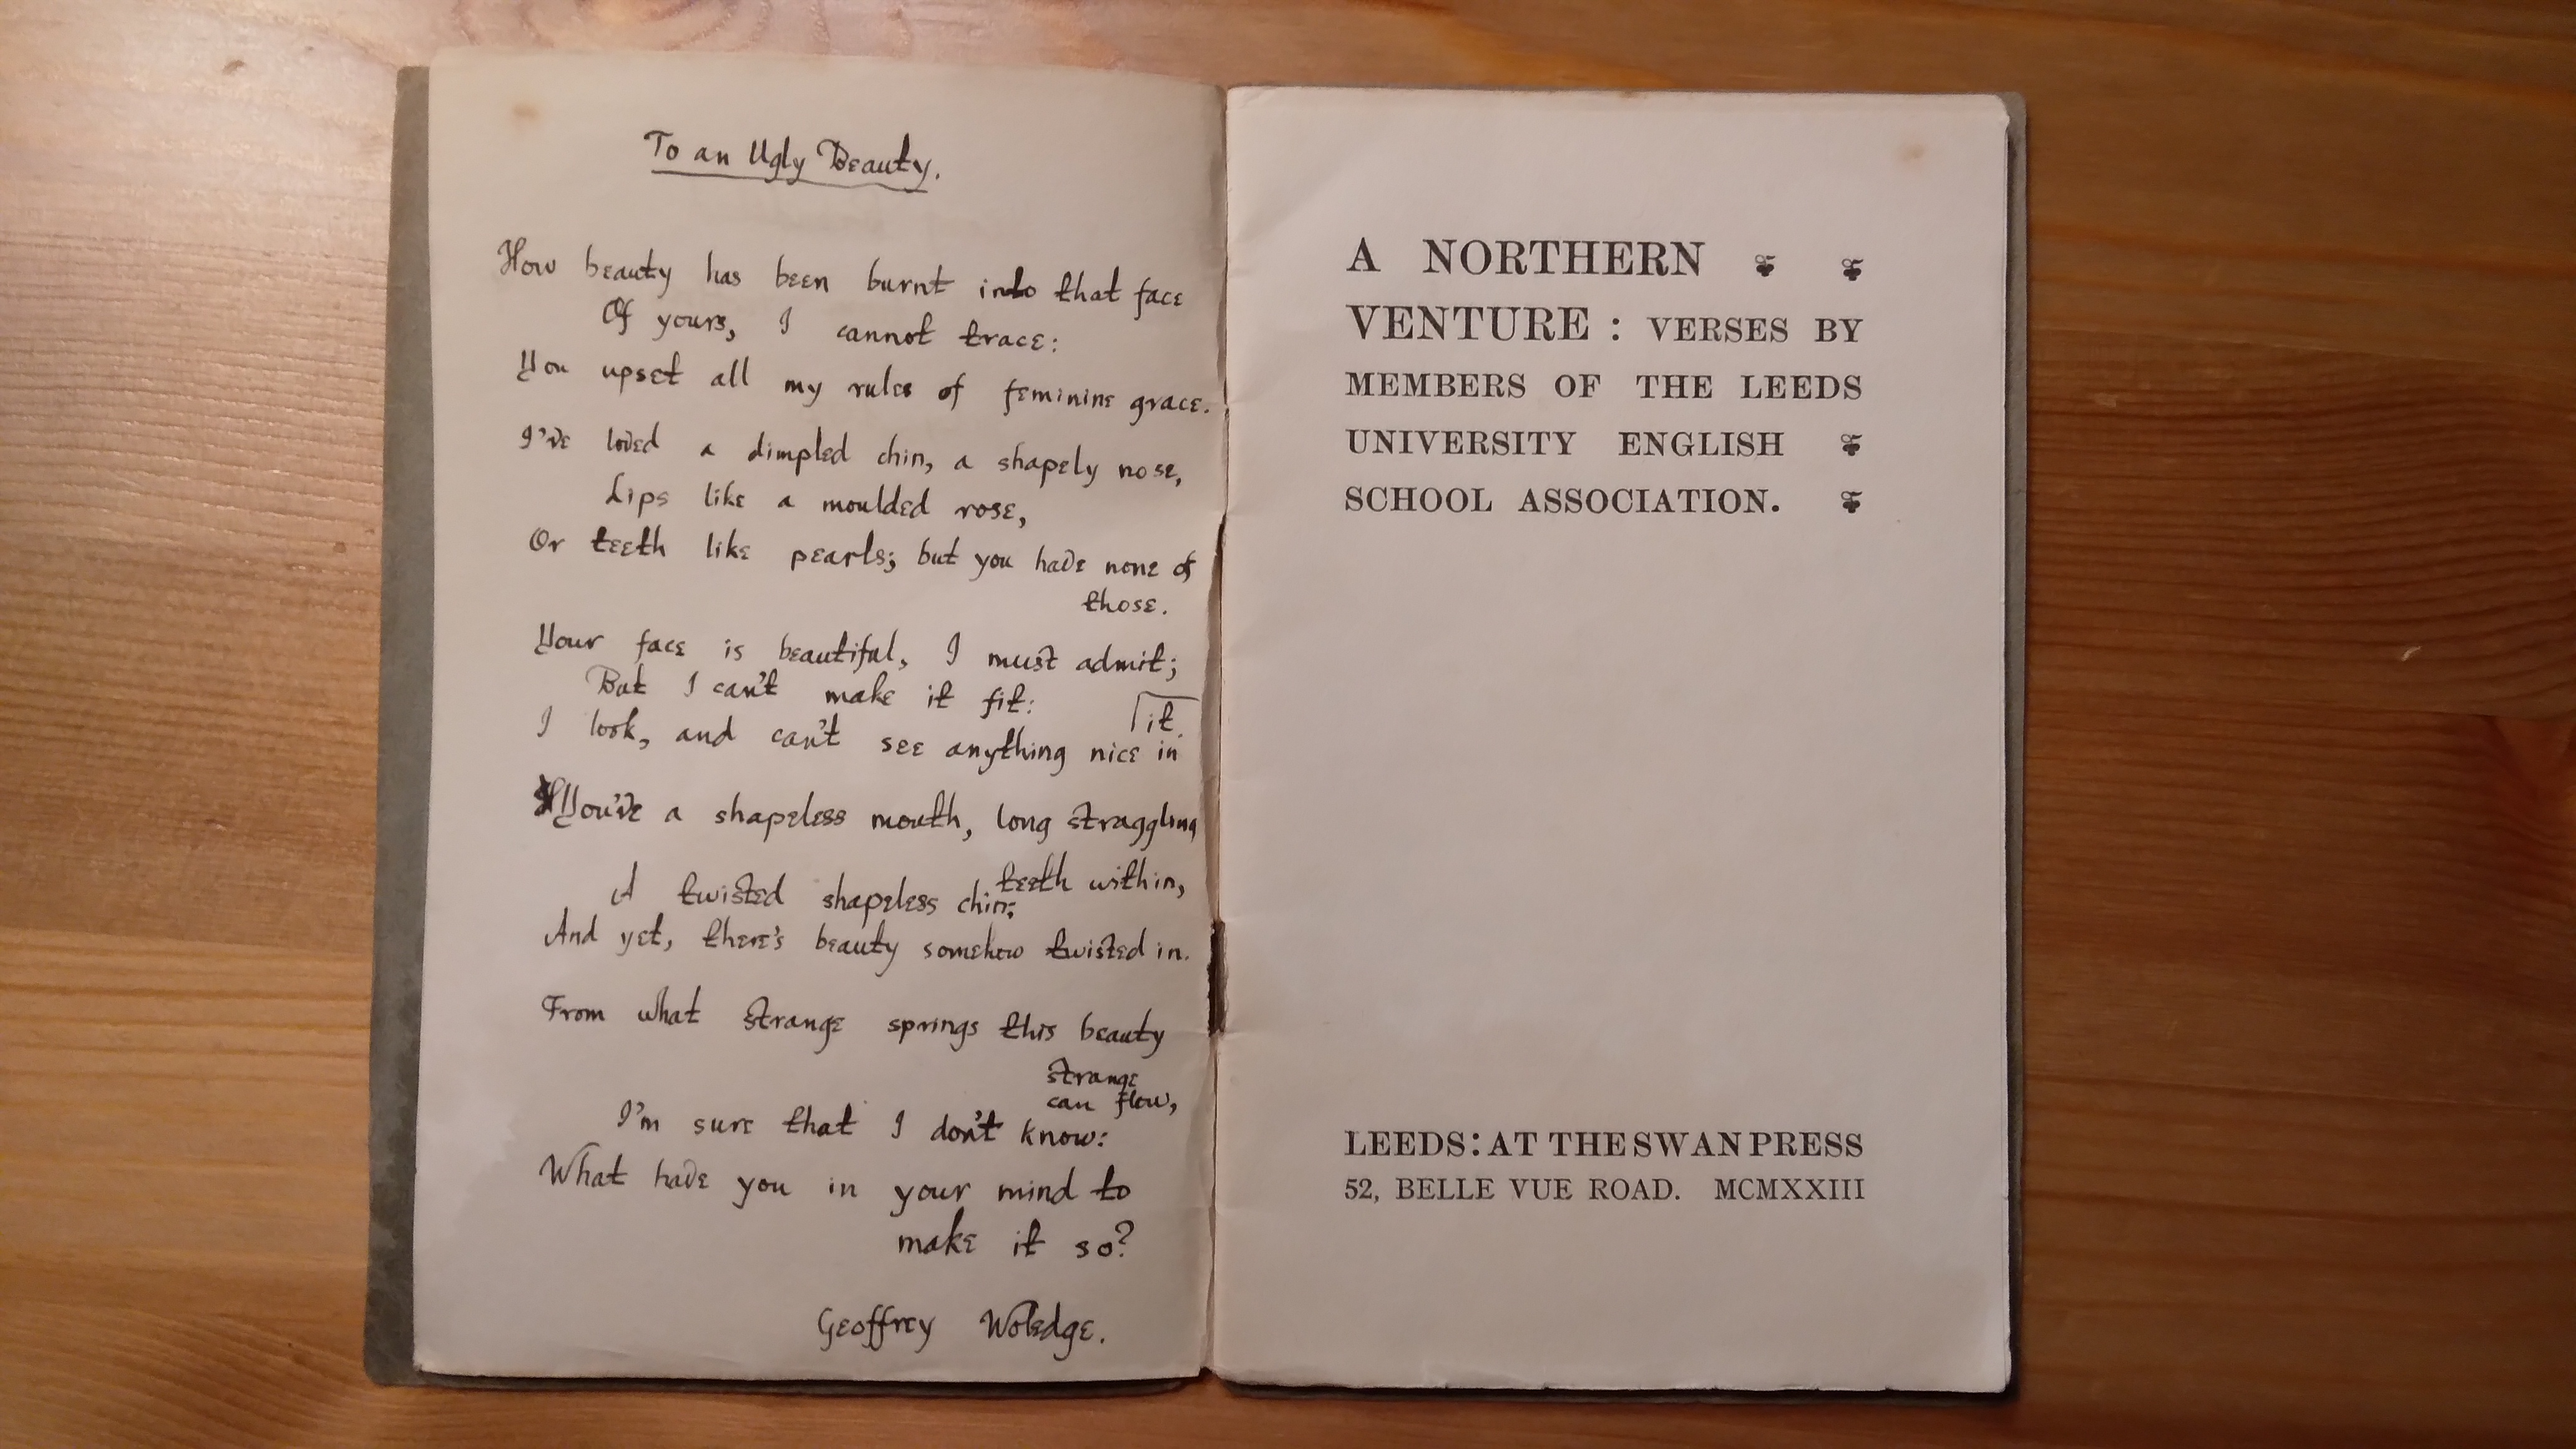 To an Ugly Beauty.
How beauty has been burnt into that face
Of yours, I cannot trace:
You upset all my rules of feminine grace.
I've loved a dimpled chin, a shapely nose,
Lips like a moulded rose,
Or teeth like pearls; but you have none of
those.
Your face is beautiful, I must admit;
But I can't make it fit:
I look, and can't see anything nice in
it.
You've a shapeless mouth, long straggling
teeth within,
A twisted shapeless chin;
And yet, there's beauty somehow twisted in.
From what strange springs this beauty
strange
can flow,
I'm sure that I don't know:
What have you in your mind to
make it so?
Geoffrey Woledge.
A NORTHERN
VENTURE : VERSES BY
MEMBERS OF THE LEEDS
UNIVERSITY ENGLISH
SCHOOL ASSOCIATION.
LEEDS: AT THE SWAN PRESS
52, BELLE VUE ROAD. MCMXXIII